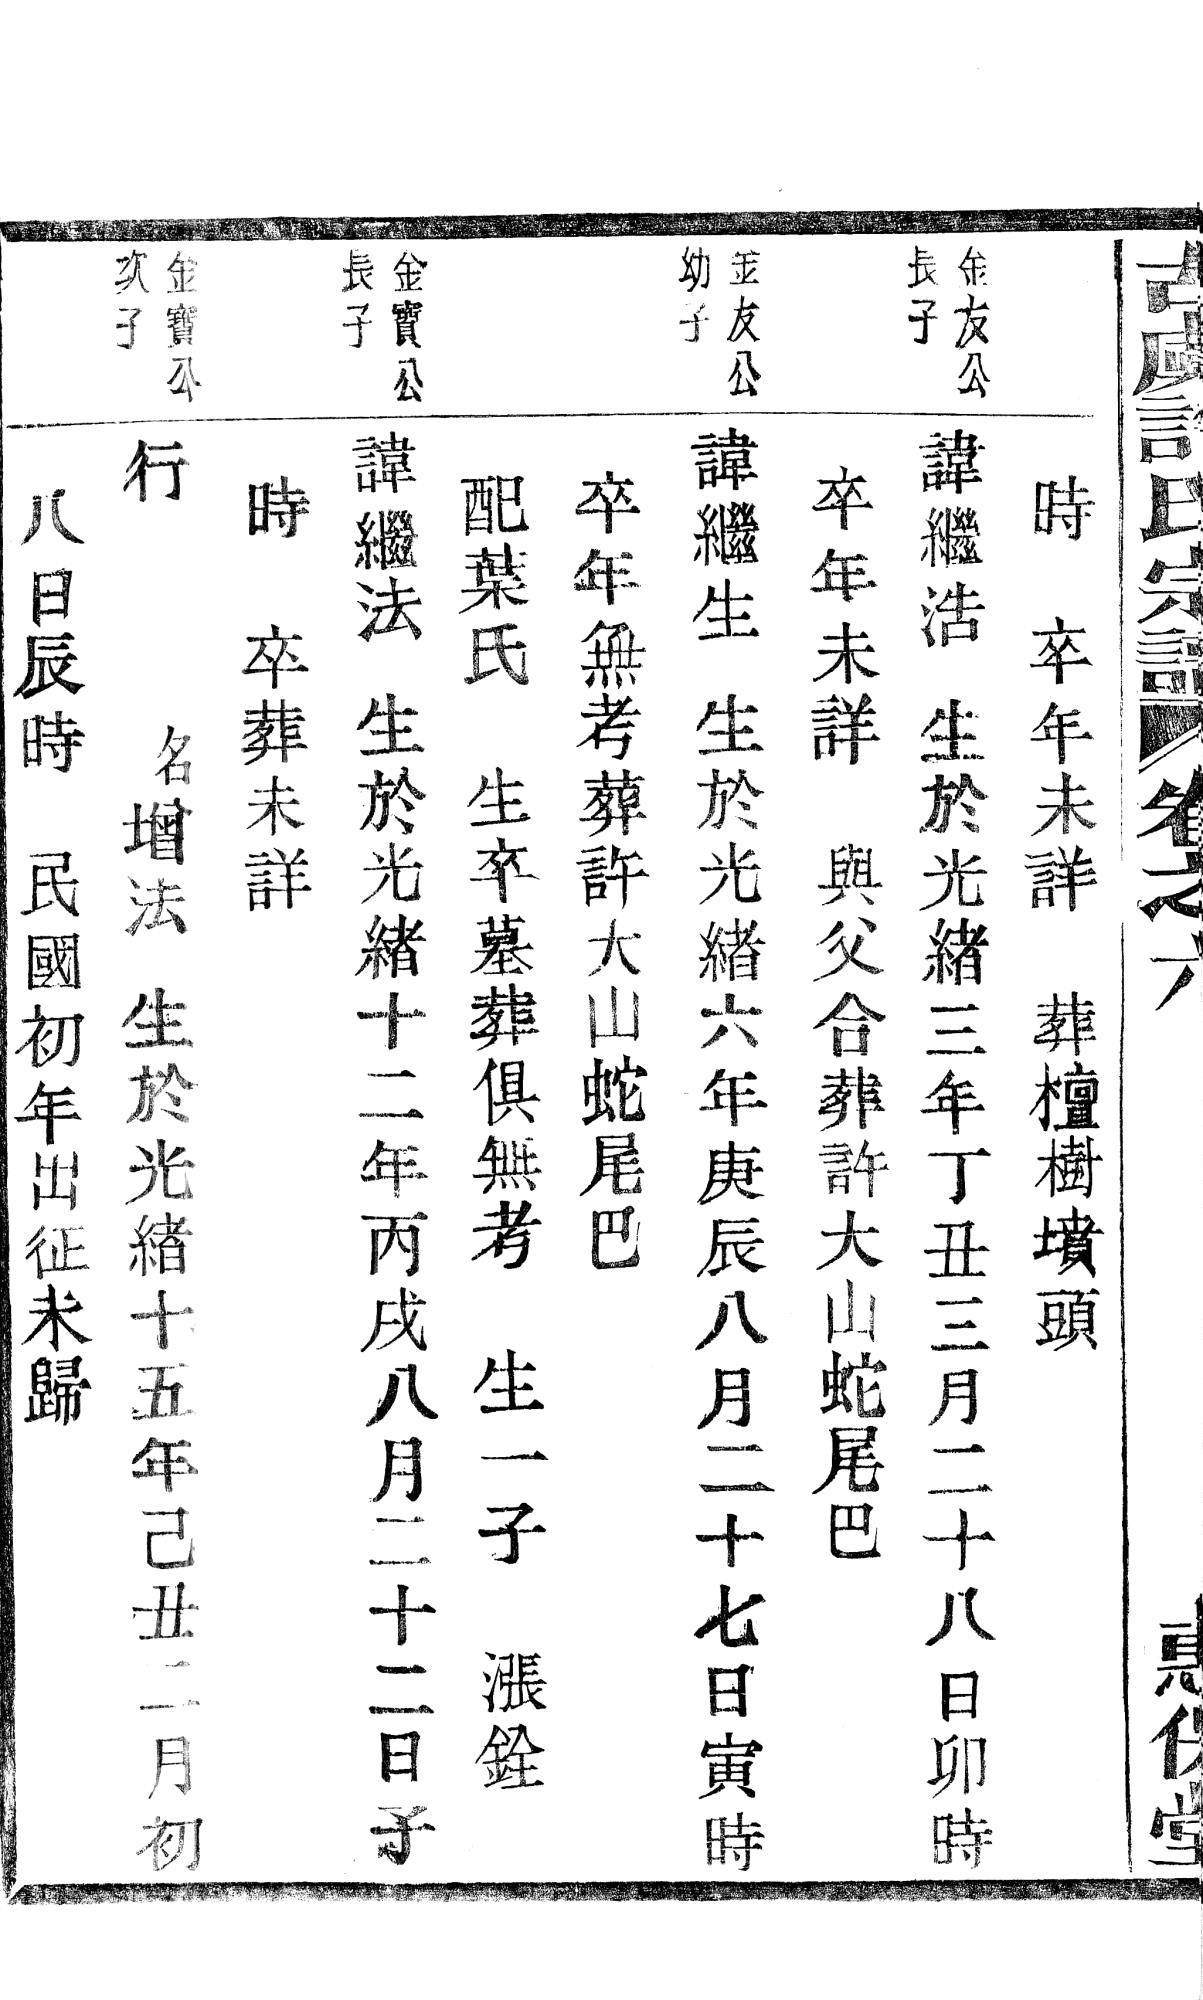 古虞許氏宗譜 卷之六 惠保堂
時 卒年未詳 葬檀樹墳頭
金友公
長子
諱繼浩 生於光緒三年丁丑三月二十八日卯時
卒年未詳 與父合葬許大山蛇尾巴
金友公
幼子
諱繼生 生於光緒六年庚辰八月二十七日寅時
卒年無考葬許大山蛇尾巴
配葉氏 生卒墓葬俱無考 生一子 漲銓
金寶公
長子
諱繼法 生於光緒十二年丙戌八月二十二日子
時 卒葬未詳
金寶公
次子
行 名增法 生於光緒十五年己丑二月初
八日辰時 民國初年出征未歸